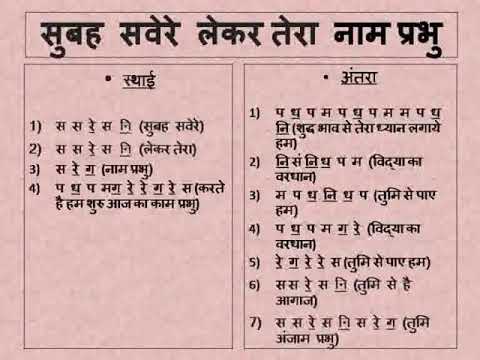 सुबह सवेरे लेकर तेरा नाम प्रभु
• स्थाई
1) स स रे॒ स नि॒ (सुबह सवेरे)
2) स स रे॒ स नि॒ (लेकर तेरा)
3) स रे॒ ग॒ (नाम प्रभु)
4) प ध॒ प मग॒ रे॒ रे॒ ग॒ रे॒ स (करते
है हम शुरु आज का काम प्रभु)
• अंतरा
1) प ध॒ प म प ध॒ प म म प ध॒
नि॒ (शुद्ध भाव से तेरा ध्यान लगाये
हम)
2) नि॒ सं नि॒ ध॒ प म (विद्या का
वरधान)
3) म प ध॒ नि॒ ध॒ प (तुमि से पाए
हम)
4) प ध॒ प म ग॒ रे॒ (विद्या का
वरधान)
5) रे॒ ग॒ रे॒ रे॒ स (तुमि से पाए हम)
6) स स रे॒ स नि॒ (तुमि से है
आगाज)
7) स स रे॒ स नि॒ स रे॒ ग॒ (तुमि
अंजाम प्रभु)